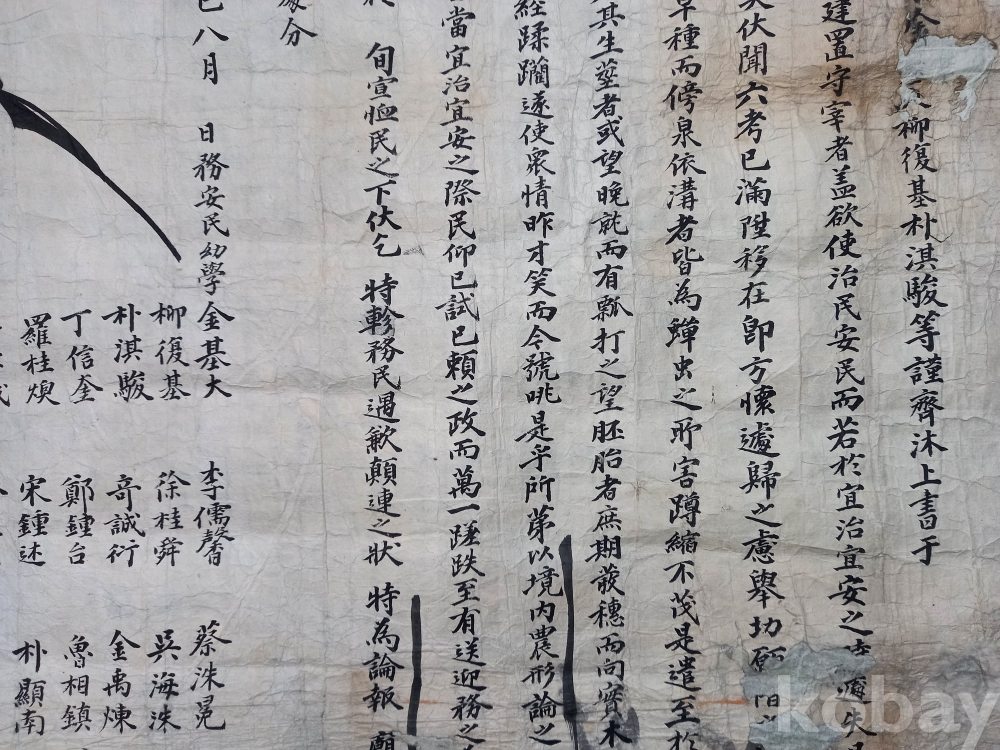 柳復基朴淇駿等謹齊沐上書于
建置守宰者盖欲使治民安民而若於宜治宜安之
伏聞六考已滿陞移在卽方懷遽歸之慮擧切
早種而傍泉依溝者皆為蟬虫之所害蹲縮不茂是遣至於
其生莖者或望晩就而有瓢打之望胚胎者庶期發穗而向實木
經蹂躪遂使衆情昨才笑而今號咷是乎所第以境內農形論之
當宜治宜安之際民仰已試已賴之政而萬一蹉跌至有送迎務之
旬宣恤民之下伏乞 特軫務民遇歉顛連之狀 特為論報
處分
巳八月 日務安民幼學金基大 李儒馨 蔡洙晃
柳復基 徐桂舜 吳海洙
朴淇駿 奇誠衍 金禹煉
丁信奎 鄭鍾台 魯相鎮
羅桂煥 宋鍾述 朴顯南
kobay